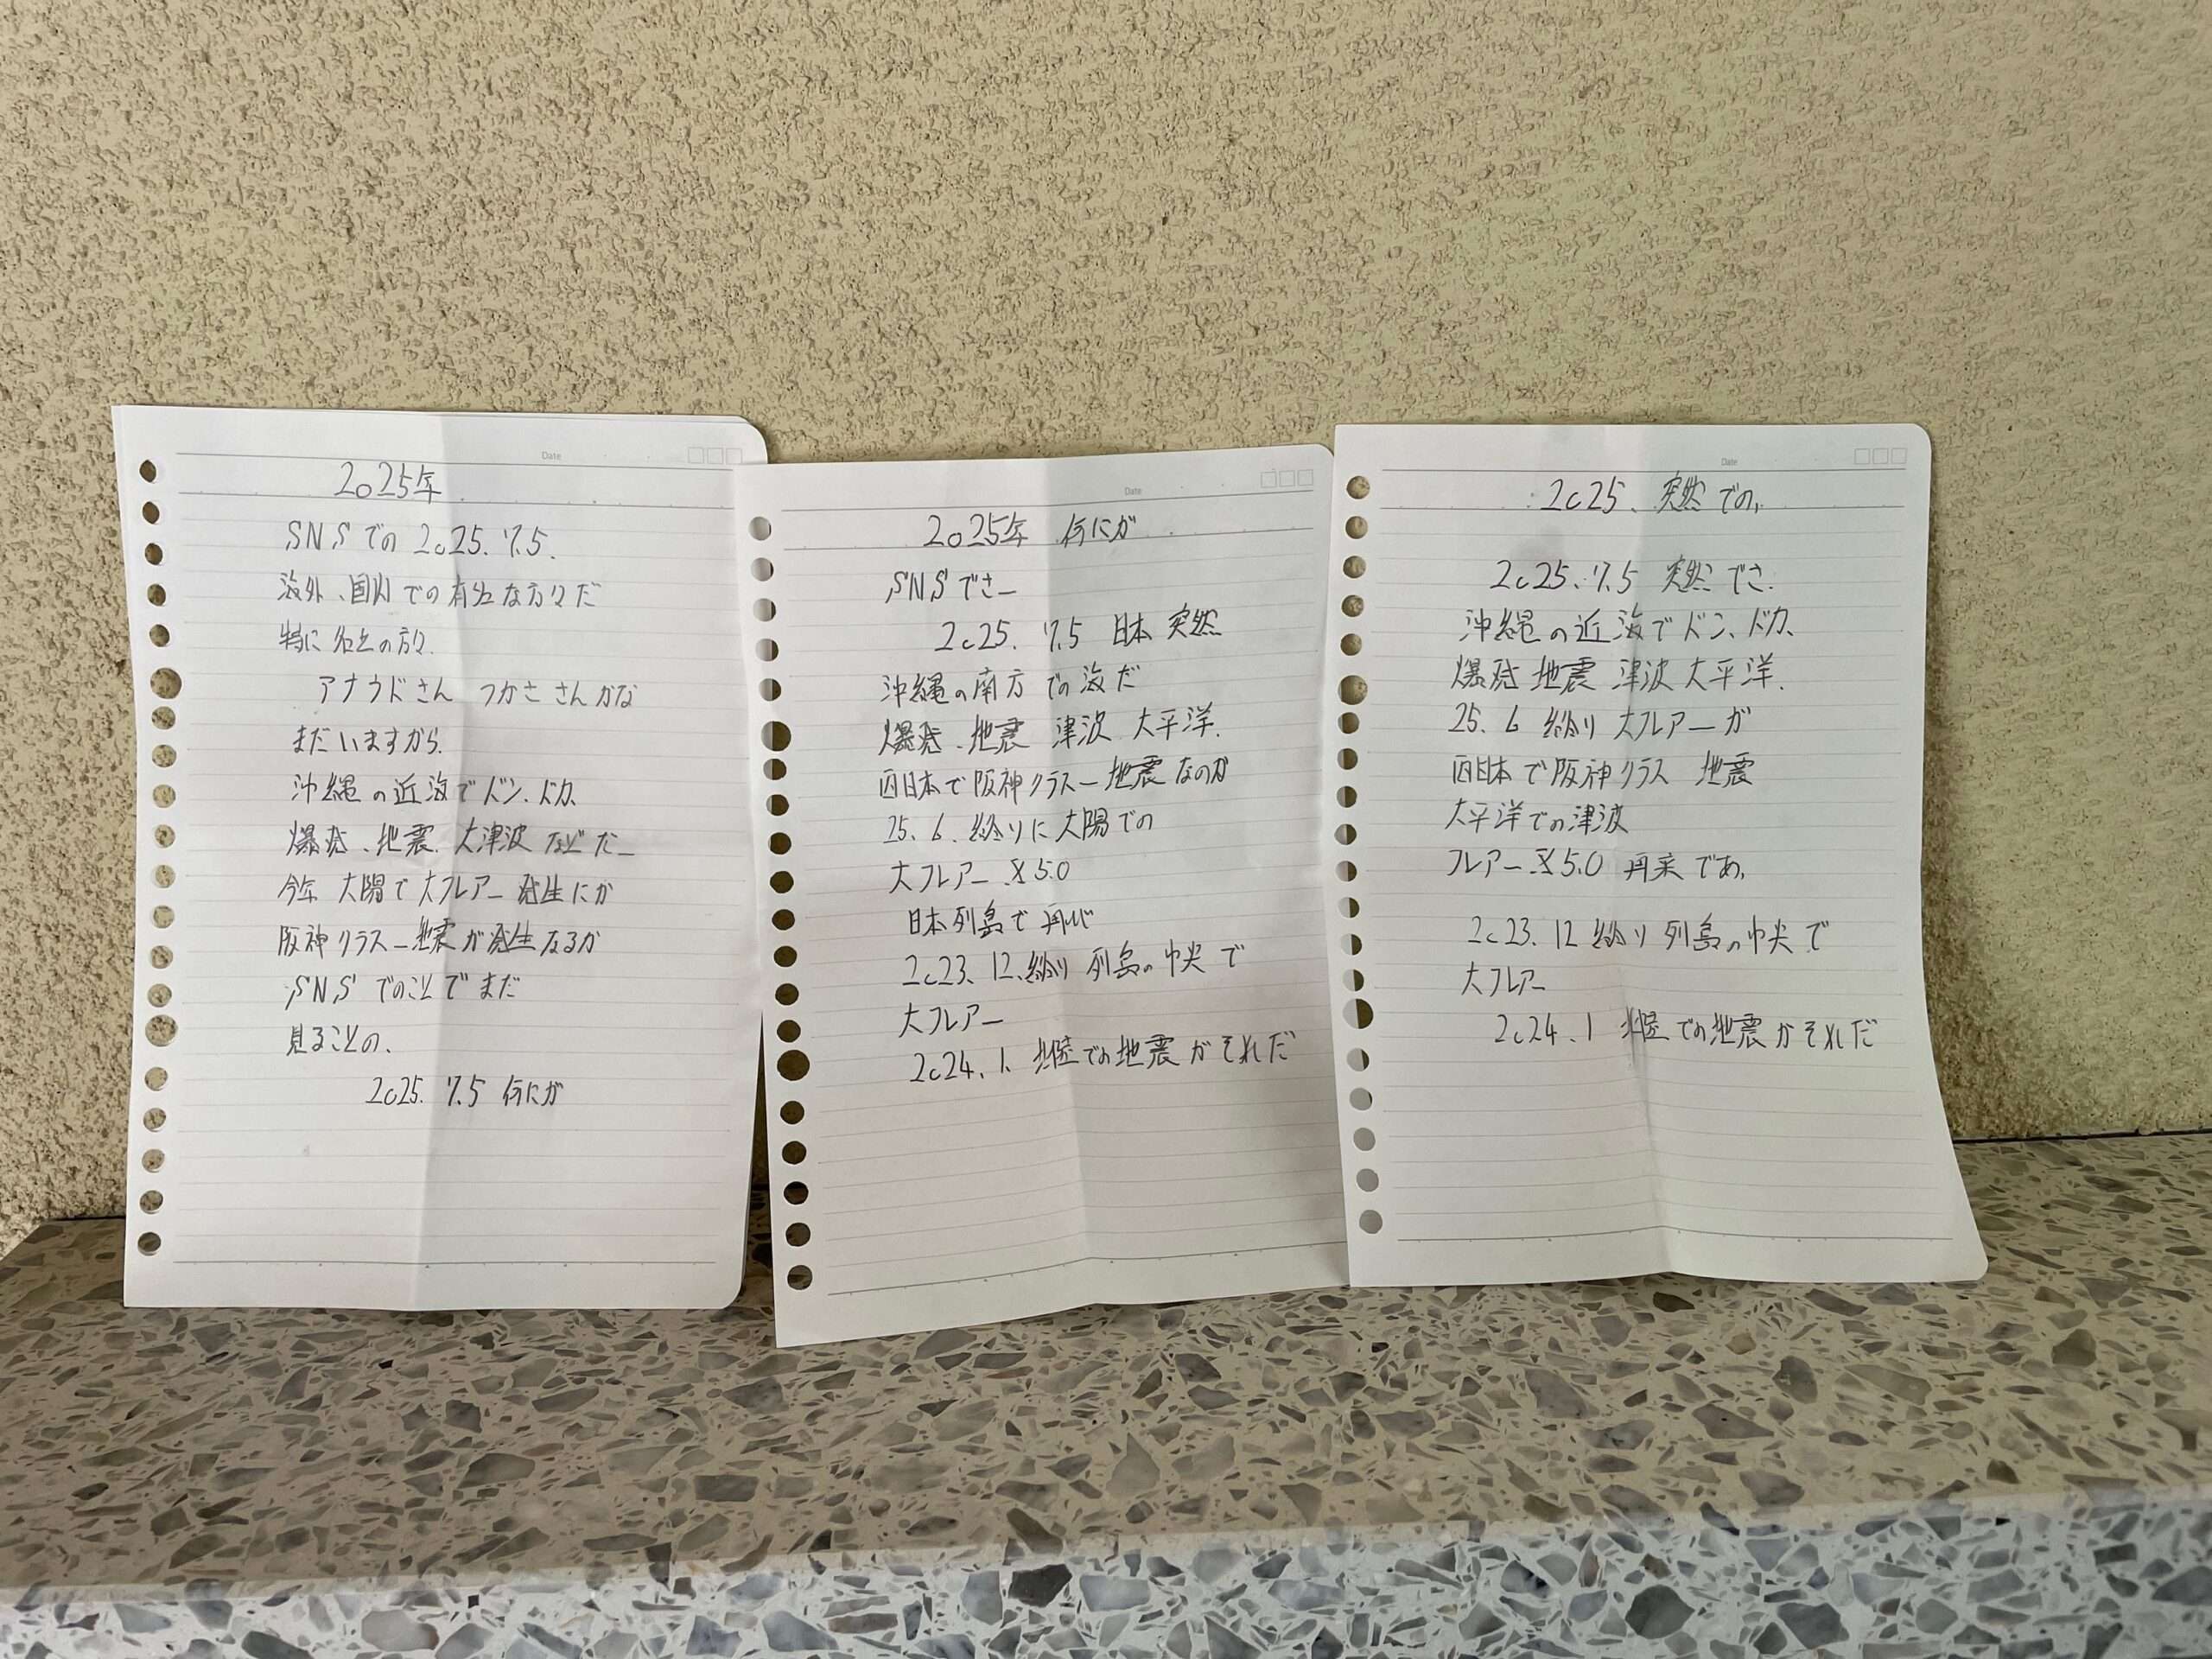 Date
2025年
SNSでの 2025. 7.5.
海外、国内での有名な方々だ
特に名士の方々.
アナウドさん つかささんかな
まだいますから.
沖縄の近海でドン、ドカ、
爆発、地震、大津波などだー
今年 大陽で大フレアー発生にか
阪神クラスー地震が発生なるか
SNSでのことでまだ
見ることの、
2025. 7.5 何にが
Date
2025年 何にが
SNSでさー
2025. 7.5 日本 突然
沖縄の南方での海だ
爆発、地震 津波 大平洋.
西日本で阪神クラスー地震なのか
25. 6. 終りに大陽での
大フレアー X5.0
日本列島で再び
2023. 12. 終り 列島の中央で
大フレアー
2024. 1. 北陸での地震がそれだ
Date
2025、突然での、
2025. 7.5 突然でさ.
沖縄の近海でドン、ドカ、
爆発 地震 津波 大平洋.
25. 6 終り 大フレアーが
西日本で阪神クラス 地震
大平洋での津波
フレアー X5.0 再来であ、
2023. 12 終り 列島の中央で
大フレアー
2024. 1 北陸での地震がそれだ